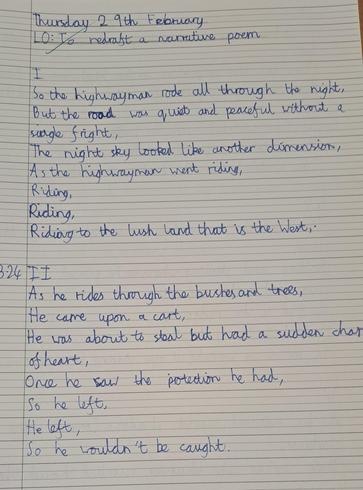 Thursday 29th February
LO: To redraft a narrative poem
I
So the highwayman rode all through the night,
But the road was quiet and peaceful without a
single fright,
The night sky looked like another dimension,
As the highwayman went riding,
Riding,
Riding,
Riding to the lush land that is the West,.
324 II
As he rides through the bushes and trees,
He came upon a cart,
He was about to steal but had a sudden chan
of heart,
Once he saw the potection he had,
So he left,
He left,
So he wouldn't be caught.